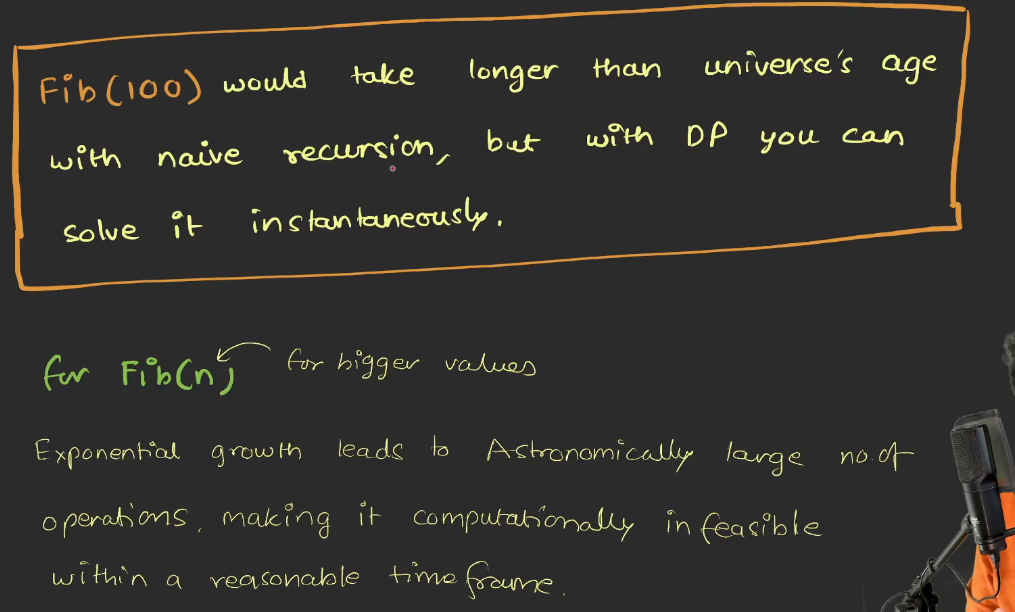 Fib(100) would take longer than universe's age
with naive recursion, but with DP you can
solve it instantaneously.
for Fib(n) for bigger values
Exponential growth leads to Astronomically large no. of
operations, making it computationally infeasible
within a reasonable timeframe.